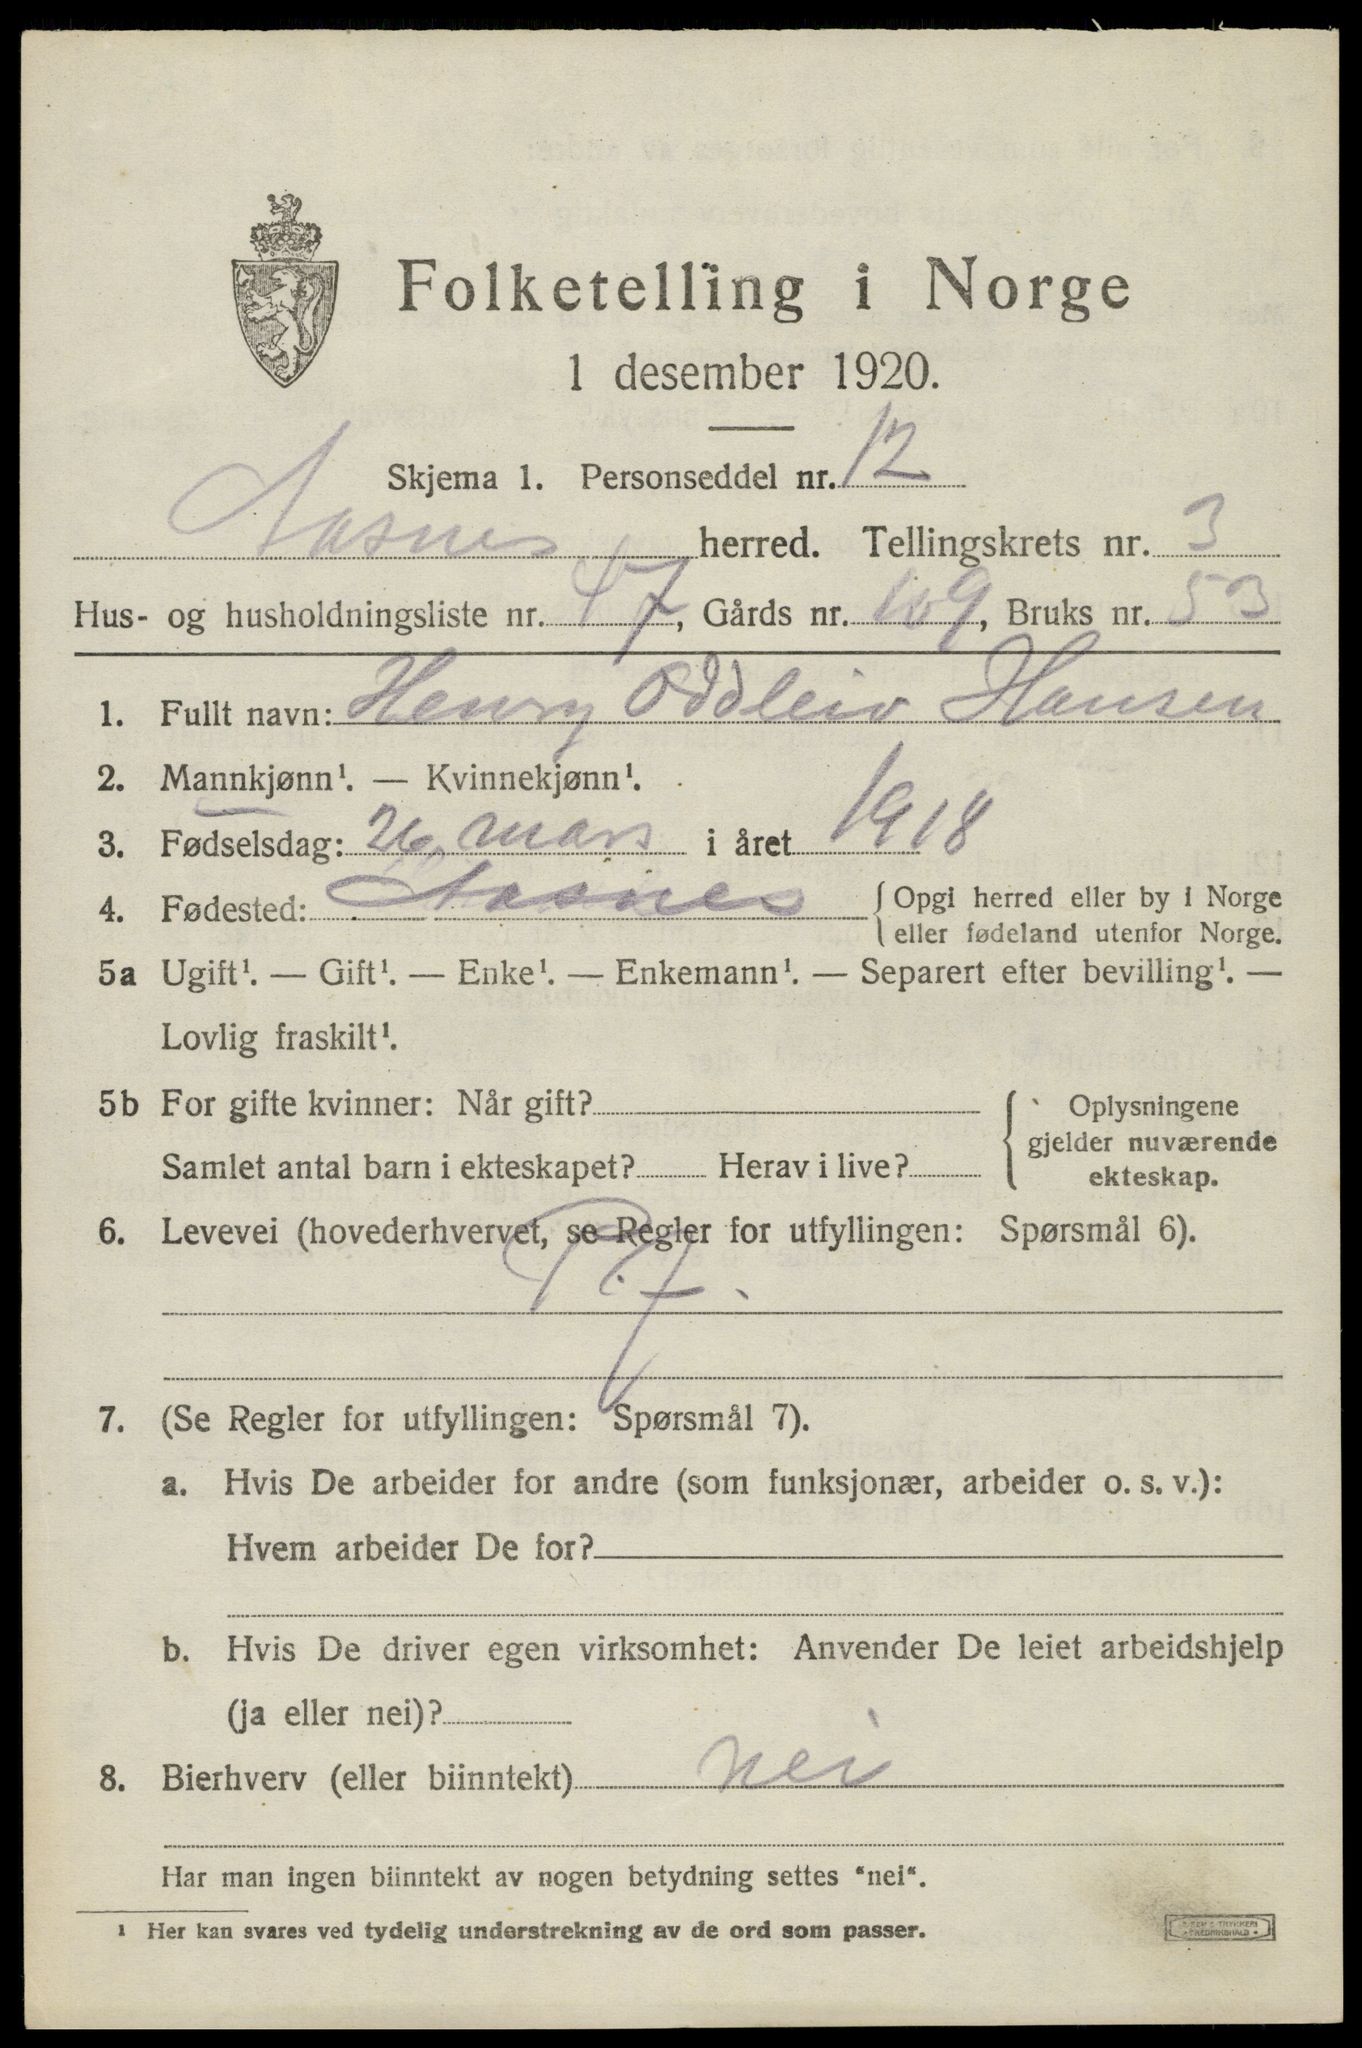 Folketelling i Norge
1 desember 1920.
Skjema 1. Personseddel nr. 12
Aasnes herred. Tellingskrets nr. 3
Hus- og husholdningsliste nr. 47, Gårds nr. 109, Bruks nr. 53
1. Fullt navn: Henry Oddleiv Hansen
2. Mannkjønn¹. — Kvinnekjønn¹.
3. Fødselsdag: 26, mars i året 1918
4. Fødested: Aasnes {Opgi herred eller by i Norge
eller fødeland utenfor Norge.
5a Ugift¹. — Gift¹. — Enke¹. — Enkemann¹. — Separert efter bevilling¹. —
Lovlig fraskilt¹.
5b For gifte kvinner: Når gift? { Oplysningene
gjelder nuværende
Samlet antal barn i ekteskapet? Herav i live? ekteskap.
6. Levevei (hovederhvervet, se Regler for utfyllingen: Spørsmål 6).
7. (Se Regler for utfyllingen: Spørsmål 7).
a. Hvis De arbeider for andre (som funksjonær, arbeider o. s. v.):
Hvem arbeider De for?
b. Hvis De driver egen virksomhet: Anvender De leiet arbeidshjelp
(ja eller nei)?
8. Bierhverv (eller biinntekt) nei
Har man ingen biinntekt av nogen betydning settes “nei“.
¹ Her kan svares ved tydelig understrekning av de ord som passer.